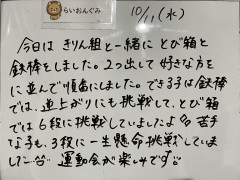 らいおんぐみ
10/11(水)
今日は きりん組と一緒に とび箱と
鉄棒をしました。2つ出して 好きな方を
に 並んで順番にしました。できる子は鉄棒
では、逆上がりにも挑戦して、とび箱
では 6段に挑戦していましたよ 苦手
な子も、3段に一生懸命挑戦していま
した 運動会が楽しみです